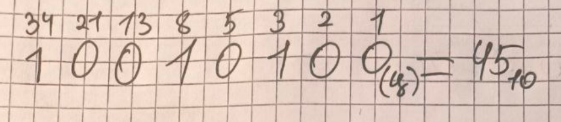 34 21 13 8 5 3 2 1
1 0 0 1 0 1 0 0(ц) = 45₁₀